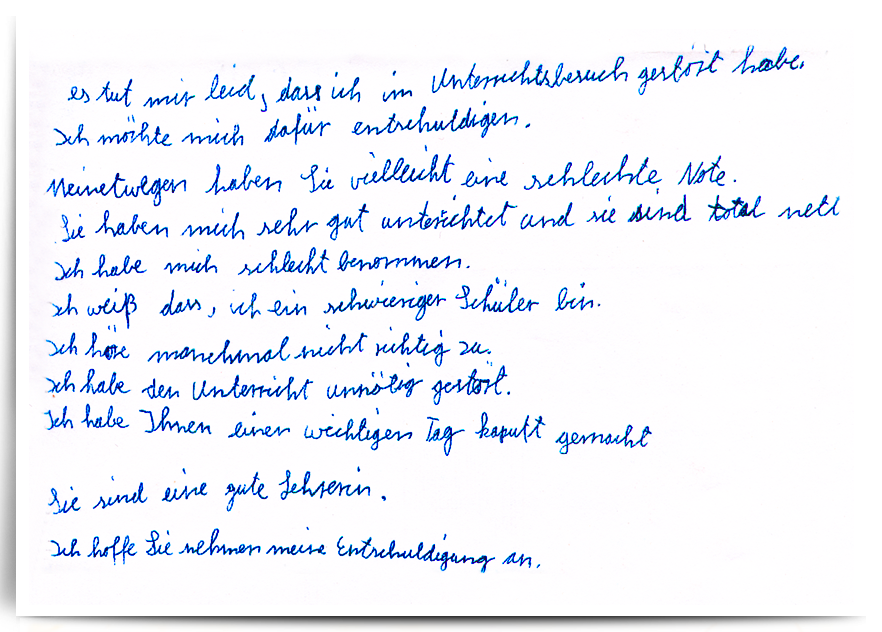 es tut mir leid, dass ich im Unterrichtsbesuch gestört habe.
Ich möchte mich dafür entschuldigen.
Meinetwegen haben Sie vielleicht eine schlechte Note.
Sie haben mich sehr gut unterichtet und sie sind total nett
Ich habe mich schlecht benommen.
Ich weiß dass, ich ein schwieriger Schüler bin.
Ich höre manchmal nicht richtig zu.
Ich habe den Unterricht unnötig gestört.
Ich habe Ihnen einen wichtigen Tag kaputt gemacht
Sie sind eine gute Lehrerin.
Ich hoffe Sie nehmen meine Entschuldigung an.